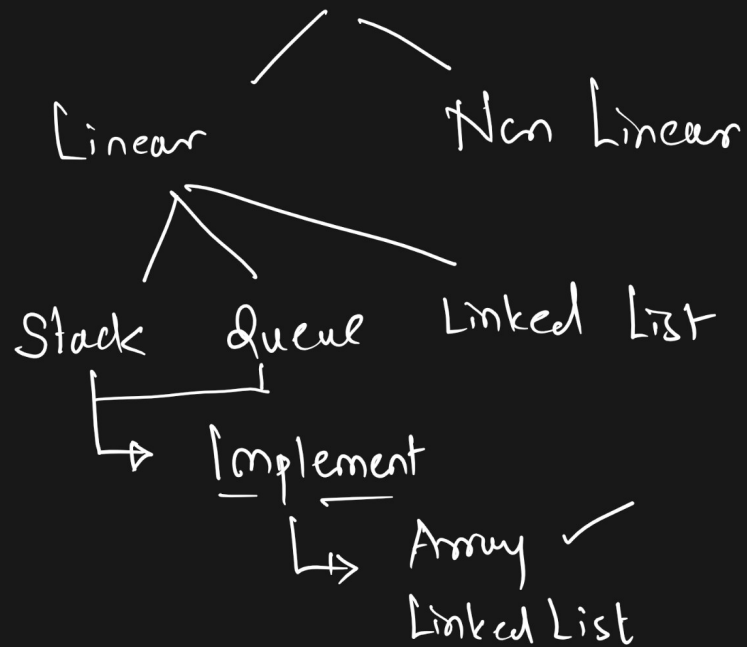 Linear Non Linear
Stack Queue Linked List
Implement
Array ✓
Linked List